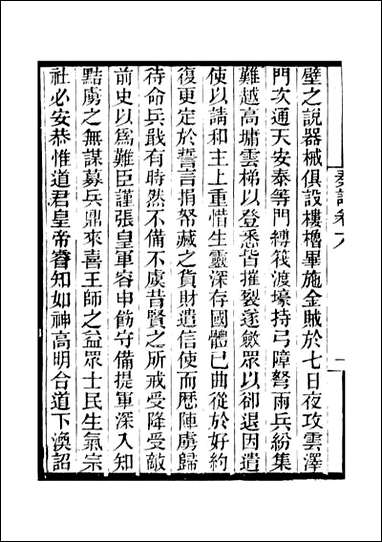 壁之說器械俱設樓櫓畢施金賊於七日夜攻雲澤
門次通天安泰等門縛筏渡壕持弓障弩兩兵紛集
難越高墉雲梯以登悉皆摧裂遂斂眾以卻退因遣
使以請和主上重惜生靈深存國體已曲從於好約
復更定於誓言捐帑藏之貨財遣信使而歷陣虜歸
待命兵戢有時然不備不虞昔賢之所戒受降受敵
前史以為難臣謹張皇軍容申飭守備提軍深入知
點虜之無謀募兵鼎來喜王師之益眾士民生氣宗
社必安恭惟道君皇帝睿知如神高明合道下渙詔